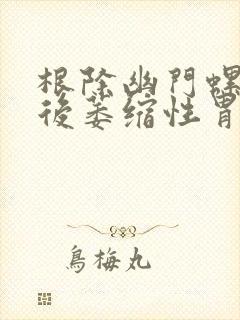 根除幽門螺
後萎缩性胃
烏梅丸